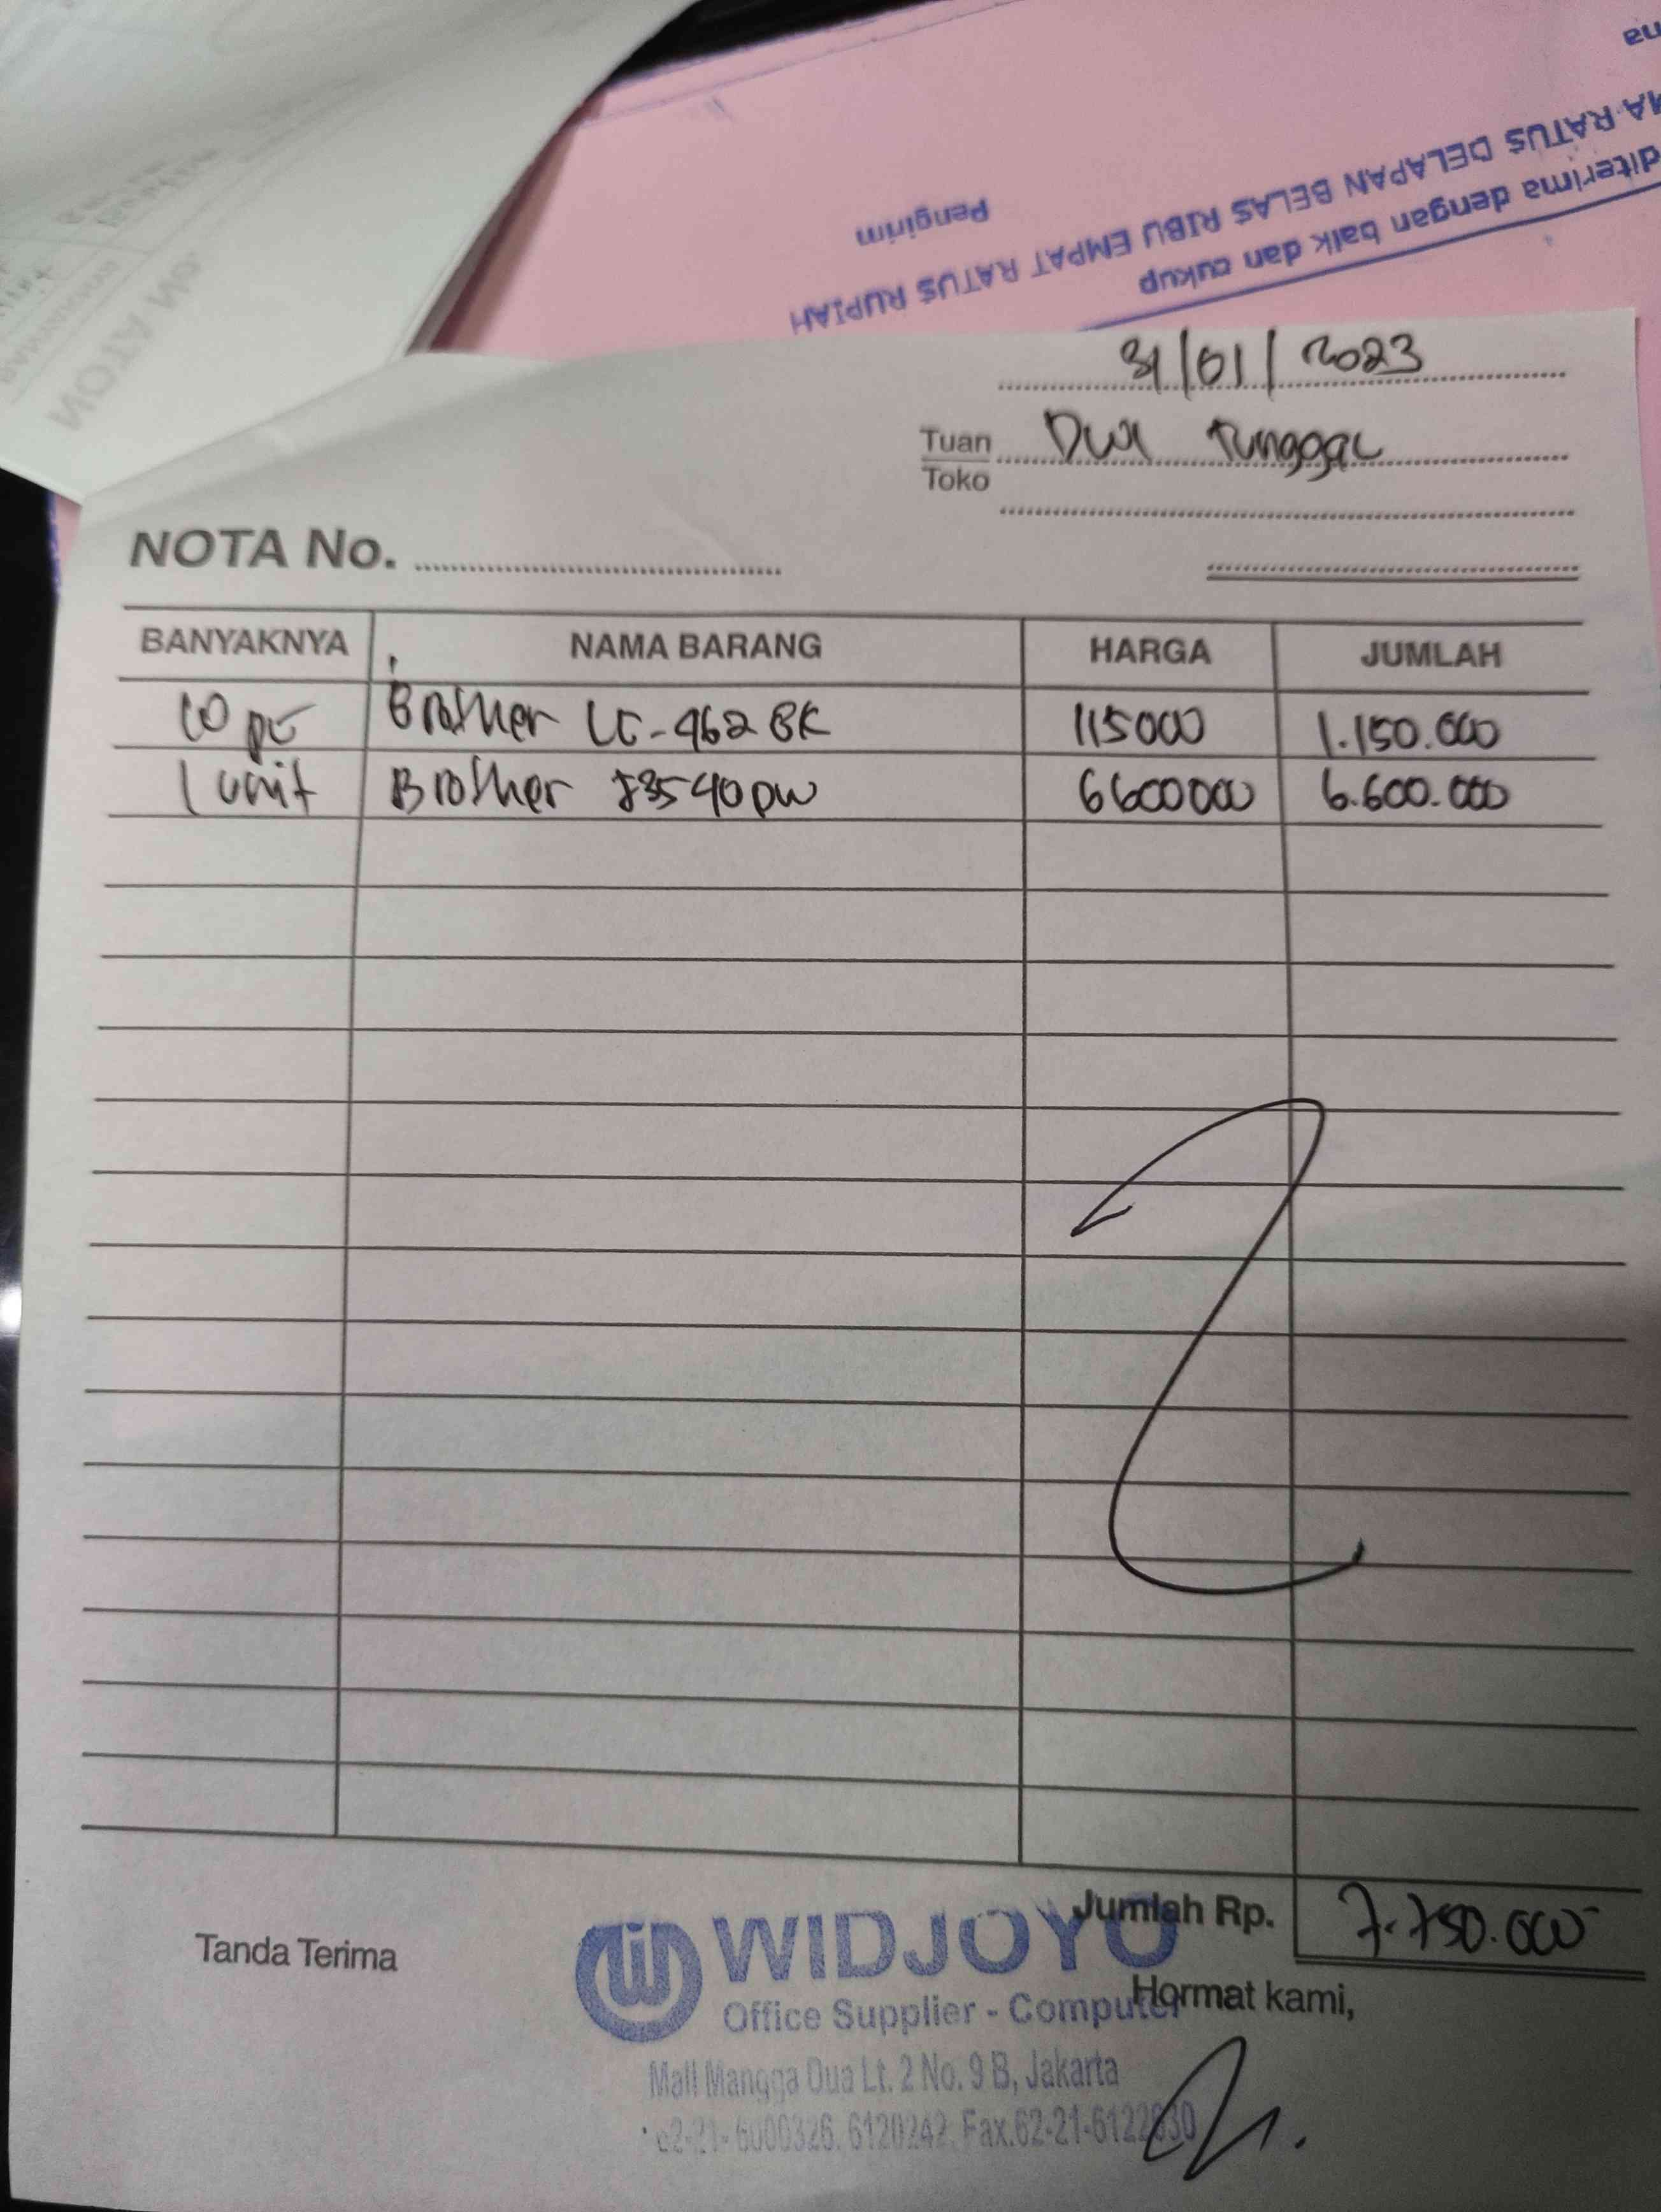 MA RATUS DELAPAN BELAS RIBU EMPAT RATUS RUPIAH
diterima dengan baik dan cukup
Pengirim
31/01/2023
Tuan Dwi Tunggal
Toko
NOTA No.
BANYAKNYA NAMA BARANG HARGA JUMLAH
10 pc Brother LC-462BK 115000 1.150.000
1 unit Brother J3540DW 6600000 6.600.000
Jumlah Rp. 7.750.000
Tanda Terima
WIDJOYO
Hormat kami,
Office Supplier - Computer
Mall Mangga Dua Lt. 2 No. 9 B, Jakarta
62-21- 6000326, 6120242, Fax.62-21-6122830